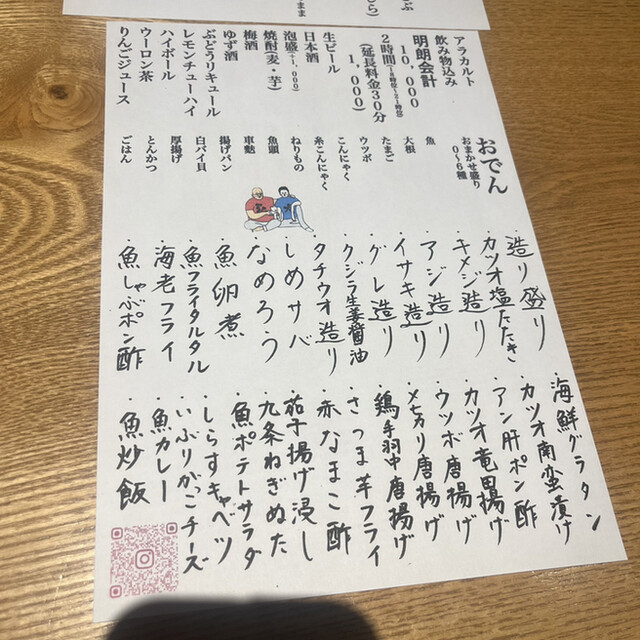 アラカルト
飲み物込み
明朗会計
10,000
2時間
(延長料金30分
1,000)
生ビール
日本酒
泡盛(+1,000)
焼酎(麦・芋)
梅酒
ゆず酒
ぶどうリキュール
レモンチューハイ
ハイボール
ウーロン茶
りんごジュース
おでん
おまかせ盛り
0〜6種
魚
大根
たまご
ウツボ
こんにゃく
糸こんにゃく
ねりもの
魚頭
車麩
揚げパン
白バイ貝
厚揚げ
とんかつ
ごはん
・造り盛り
・カツオ塩たたき
・キメジ造り
・アジ造り
・イサキ造り
・グレ造り
・クジラ生姜醤油
・タチウオ造り
・しめサバ
・なめろう
・魚卵煮
・魚フライタルタル
・海老フライ
・魚しゃぶポン酢
・海鮮グラタン
・カツオ南蛮漬け
・アン肝ポン酢
・カツオ竜田揚げ
・ウツボ唐揚げ
・メヒカリ唐揚げ
・鶏手羽中唐揚げ
・さつま芋フライ
・赤なまこ酢
・茄子揚げ浸し
・九条ねぎぬた
・魚ポテトサラダ
・しらすキャベツ
・いぶりがっこチーズ
・魚カレー
・魚炒飯